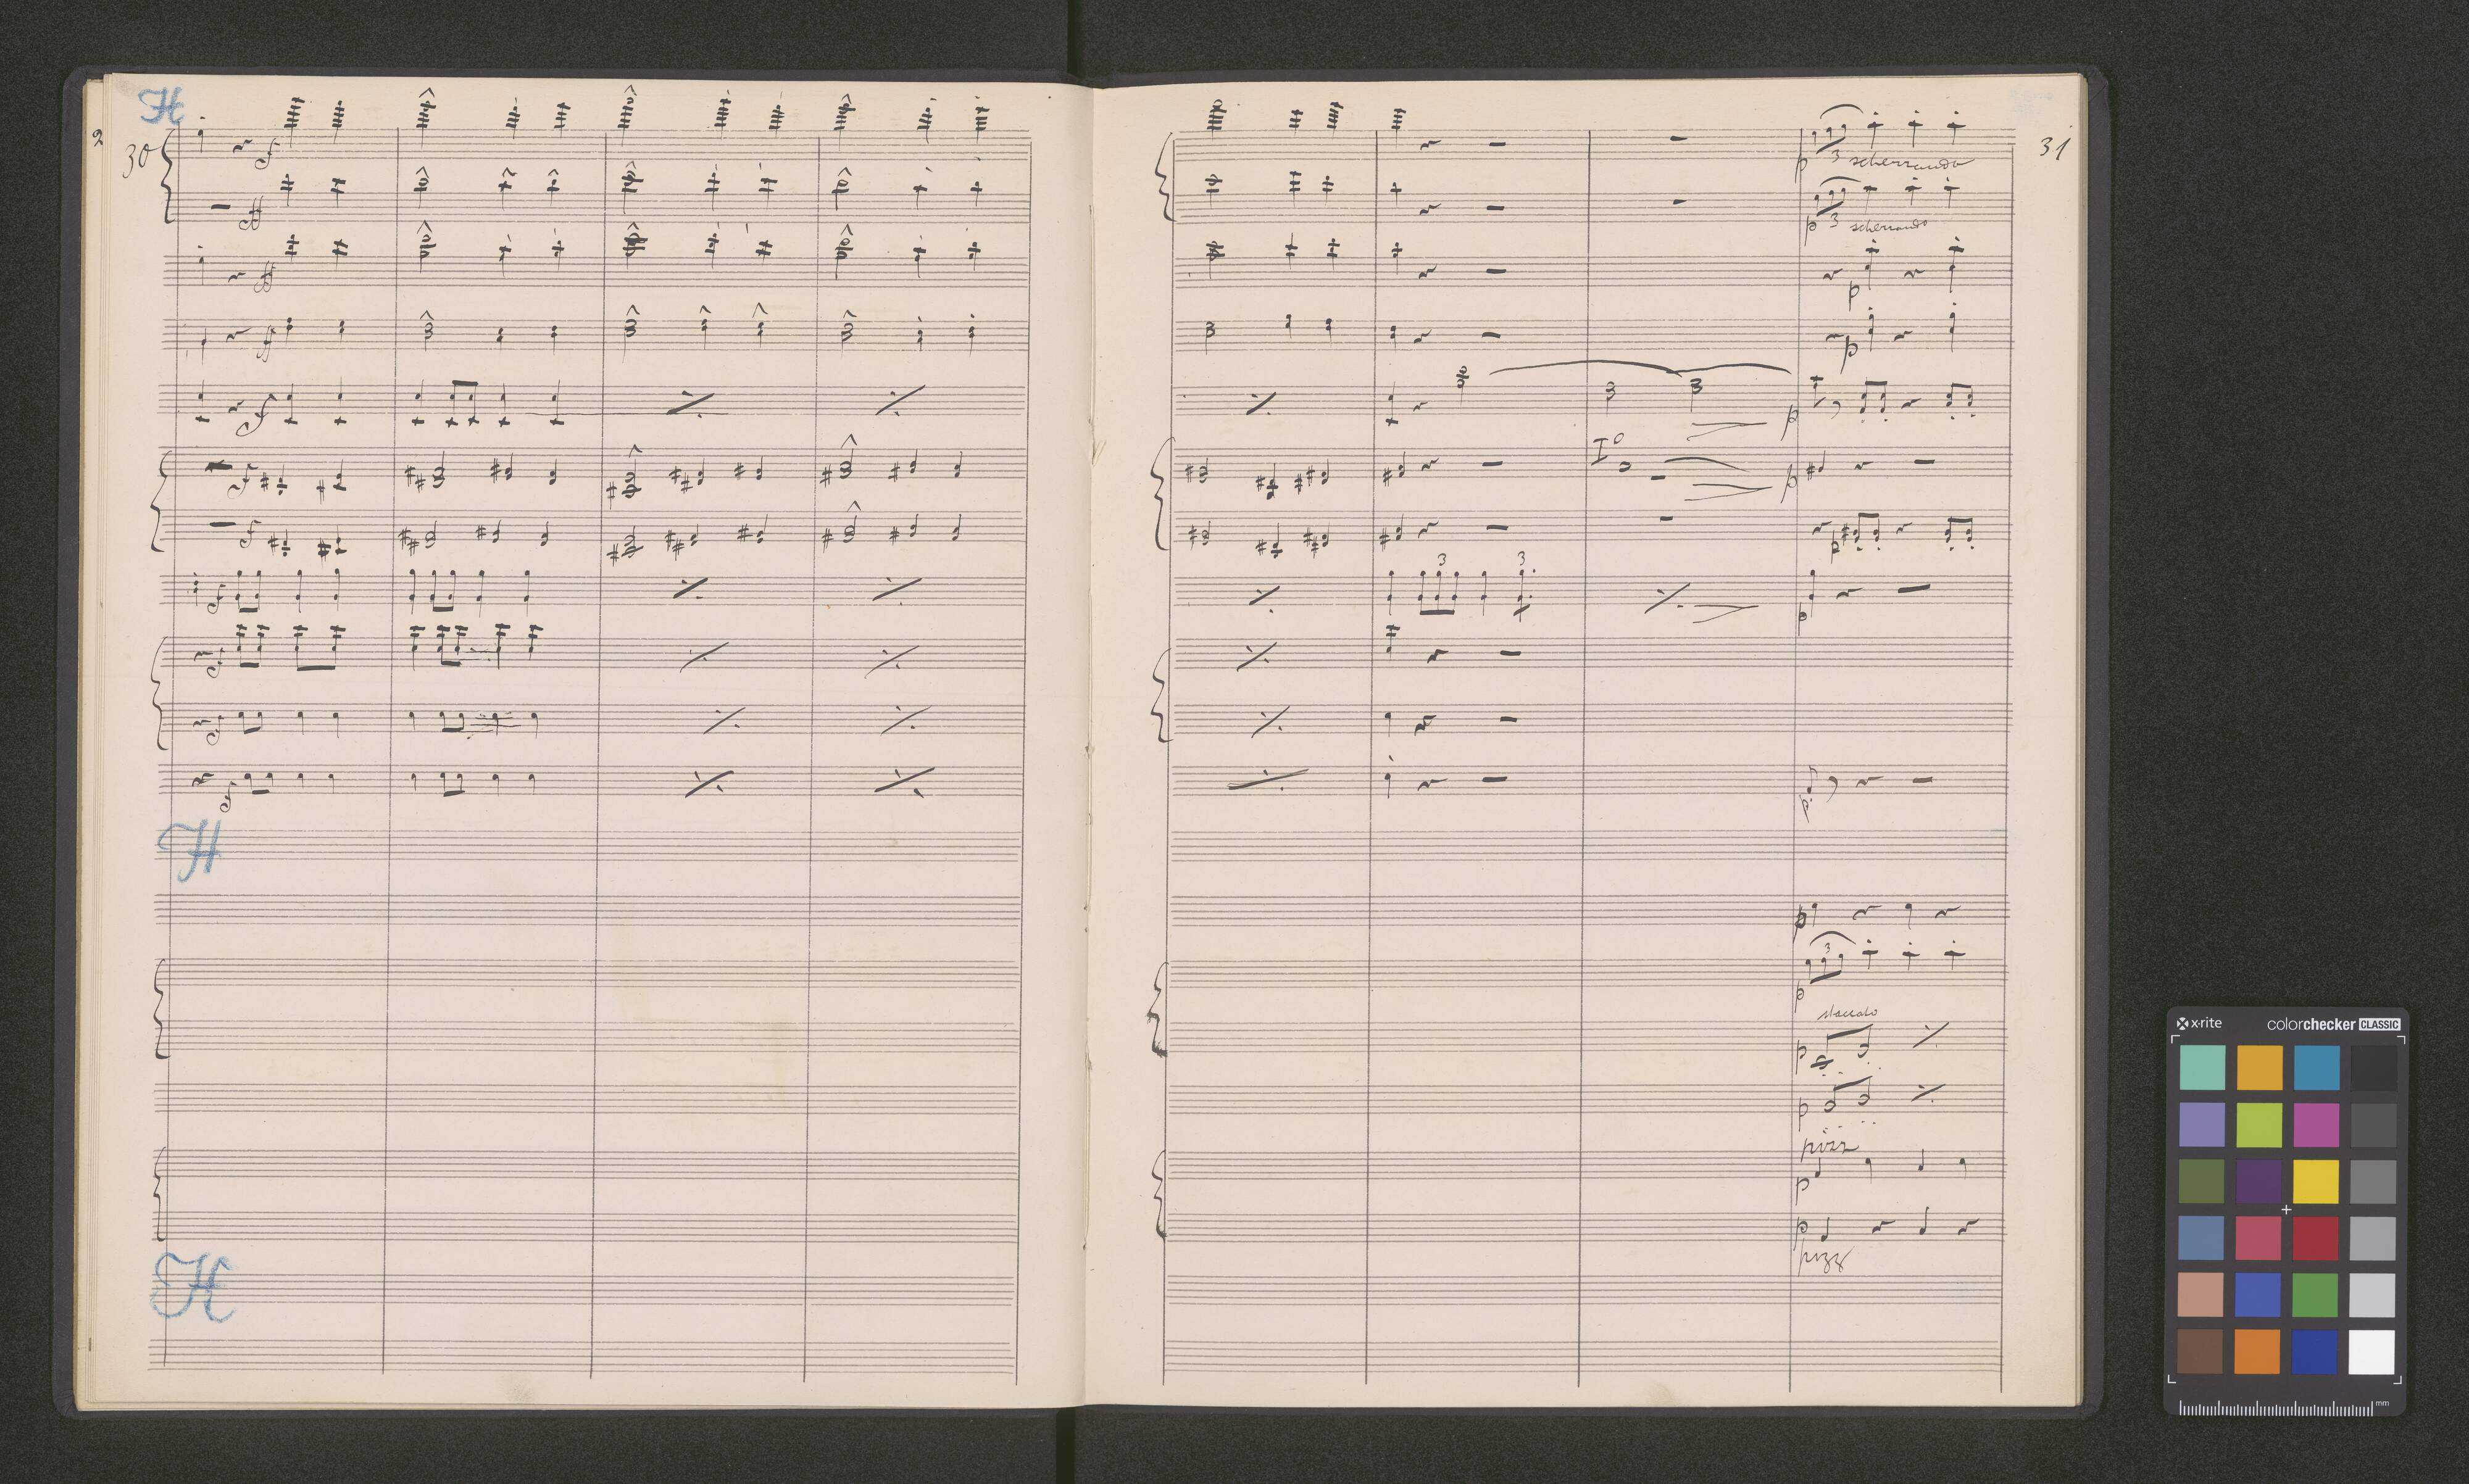 H
2
30
f
ff
ff
f
f
f
f
f
f
f
f
H
H
31
p 3 scherzando
p 3 scherzando
p
p
p
I° p
p
3 3
p
p
p
3
p
staccato
p
p
pizz
p
p
pizz
x·rite colorchecker CLASSIC
mm